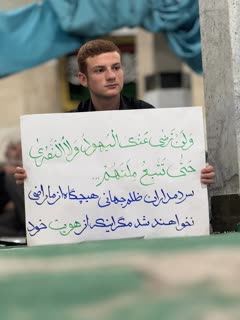 وَلَنْ تَرْضَىٰ عَنْكَ الْيَهُودُ وَلَا النَّصَارَىٰ
حَتَّىٰ تَتَّبِعَ مِلَّتَهُمْ ...
سردمداران ظلم جهانی هیچگاه از ما راضی
نخواهند شد مگر اینکه از هویت خود